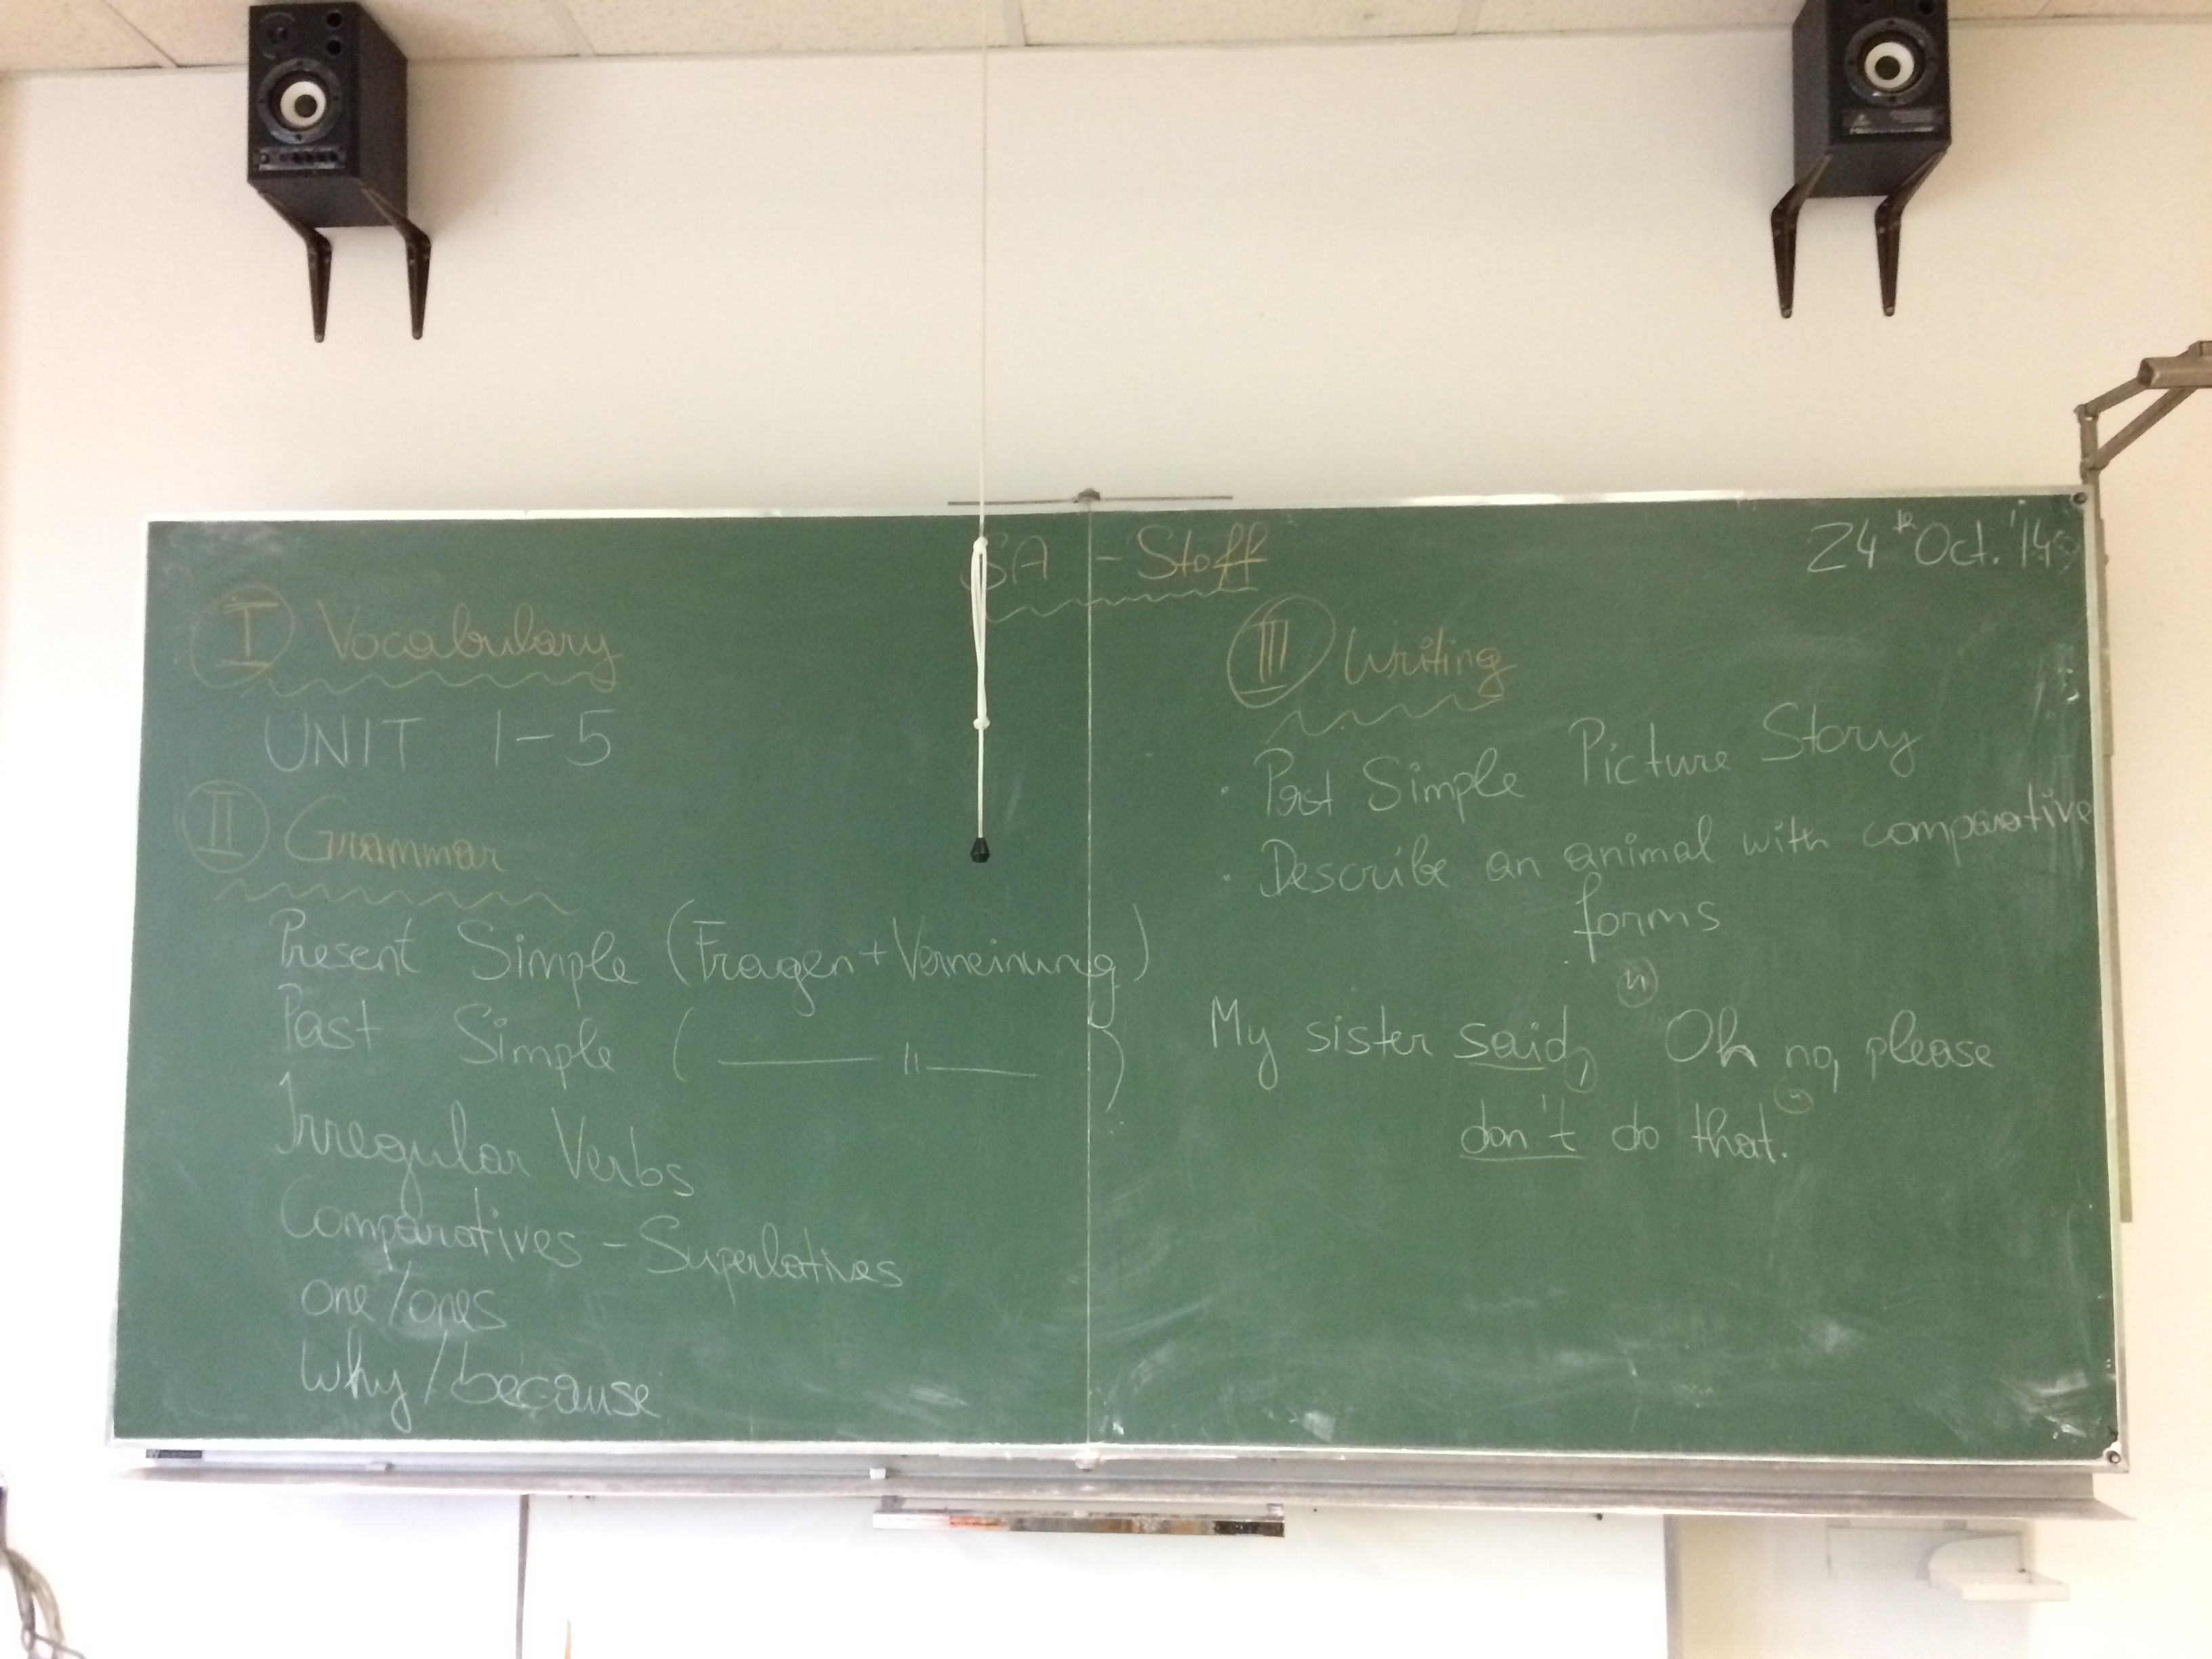 SA - Stoff
24th Oct. '14
I Vocabulary
UNIT 1-5
II Grammar
Present Simple (Fragen + Verneinung)
Past Simple ( —— " —— )
Irregular Verbs
Comparatives - Superlatives
one/ones
Why/because
III Writing
· Past Simple Picture Story
· Describe an animal with comparative
forms
My sister said, " Oh no, please
don't do that.